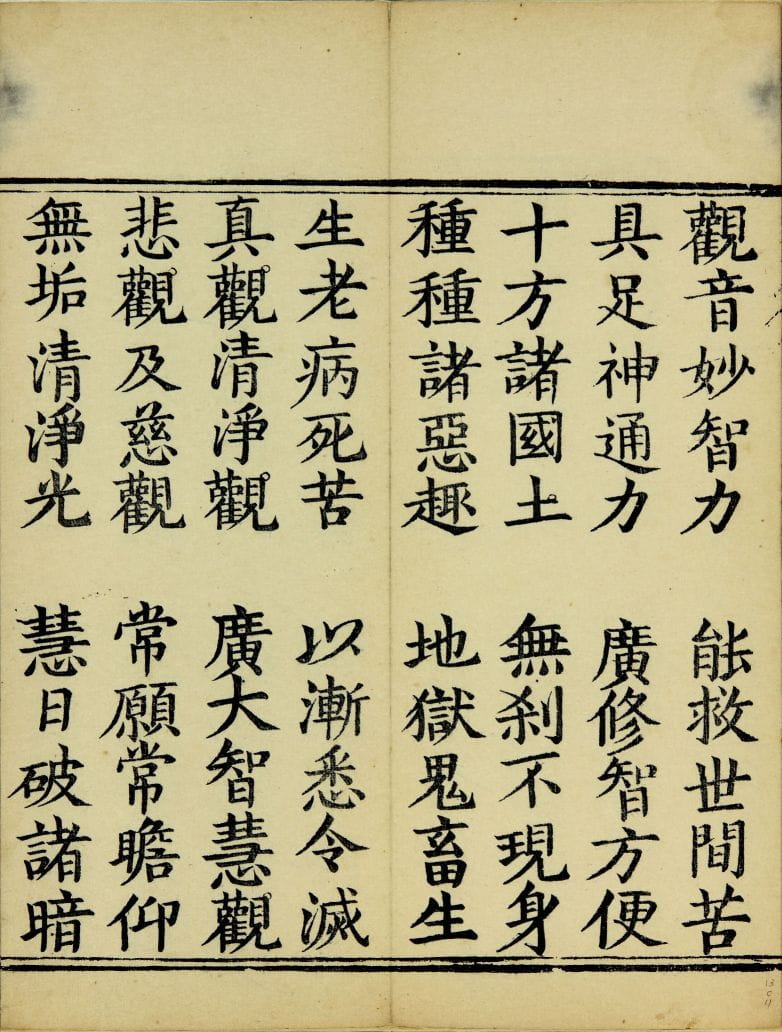 觀音妙智力　能救世間苦
具足神通力　廣修智方便
十方諸國土　無刹不現身
種種諸惡趣　地獄鬼畜生
生老病死苦　以漸悉令滅
真觀清淨觀　廣大智慧觀
悲觀及慈觀　常願常瞻仰
無垢清淨光　慧日破諸暗